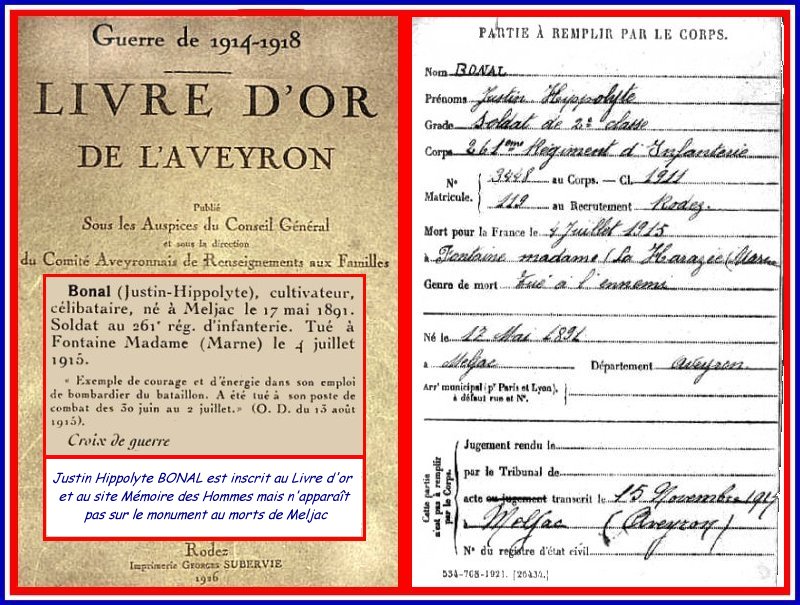 Guerre de 1914-1918
LIVRE D'OR
DE L'AVEYRON
Publié
Sous les Auspices du Conseil Général
et sous la direction
du Comité Aveyronnais de Renseignements aux Familles
Bonal (Justin-Hippolyte), cultivateur,
célibataire, né à Meljac le 17 mai 1891.
Soldat au 261e rég. d'infanterie. Tué à
Fontaine Madame (Marne) le 4 juillet
1915.
« Exemple de courage et d'énergie dans son emploi
de bombardier du bataillon. A été tué à son poste de
combat des 30 juin au 2 juillet.» (O. D. du 13 août
1915).
Croix de guerre
Justin Hippolyte BONAL est inscrit au Livre d'or
et au site Mémoire des Hommes mais n'apparaît
pas sur le monument au morts de Meljac
Rodez
Imprimerie GEORGES SUBERVIE
1926
PARTIE À REMPLIR PAR LE CORPS.
Nom BONAL
Prénoms Justin Hippolyte
Grade Soldat de 2e classe
Corps 261eme Régiment d'Infanterie
No Matricule. 3448 au Corps. — Cl. 1911
119 au Recrutement Rodez.
Mort pour la France le 4 Juillet 1915
à Fontaine madame (La Harazée (Marne
Genre de mort Tué à l'ennemi
Né le 17 Mai 1891
à Meljac Département Aveyron.
Arrt municipal (pr Paris et Lyon),
à défaut rue et No.
Cette partie
n'est pas à remplir
par le Corps.
Jugement rendu le
par le Tribunal de
acte ou jugement transcrit le 15 Novembre 1915
à Meljac (Aveyron)
No du registre d'état civil
534-708-1921. [26434.]